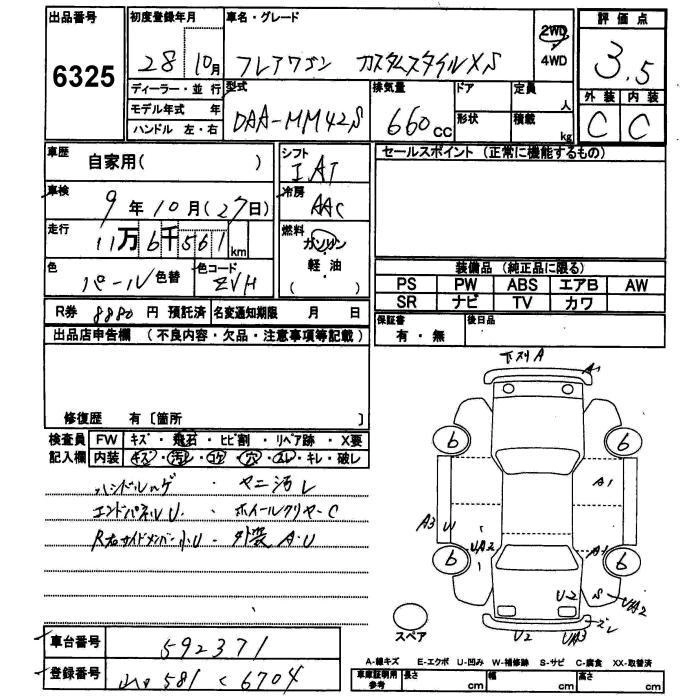 出品番号
6325
初度登録年月
28 10月
車名・グレード
フレアワゴン カスタムスタイルXS
2WD
4WD
評価点
3.5
外装 内装
C C
ディーラー・並行
モデル年式 年
ハンドル 左・右
型式
DAA-MM42S
排気量
660cc
ドア
形状
定員
人
積載
kg
車歴
自家用( )
シフト
IAT
車検
9年10月(27日)
冷房
AAC
走行
11万6千561km
燃料
ガソリン
軽・油
( )
色
パール 色替
色コード
ZVH
セールスポイント(正常に機能するもの)
装備品(純正品に限る)
PS PW ABS エアB AW
SR ナビ TV カワ
R券 8880円 預託済 名変通知期限 月 日
保証書
有・無
後日品
出品店申告欄(不良内容・欠品・注意事項等記載)
修復歴 有〔箇所 〕
検査員
記入欄
FW キズ・飛石・ヒビ割・リペア跡・X要
内装 キズ・汚レ・コゲ・穴・スレ・キレ・破レ
ハンドルハゲ・ヤニ汚レ
エンドパネルU・ホイールクリヤーC
外装A・U
下スリA
A1
6
6
A1
A3 W
UA2
A1
6
6
U2
S
UA2
ズレ
U2
UA3
スペア
車台番号
592371
登録番号
581 く 6704
A-線キズ E-エクボ U-凹み W-補修跡 S-サビ C-腐食 XX-取替済
車庫証明用
参考
長さ cm
幅 cm
高さ cm